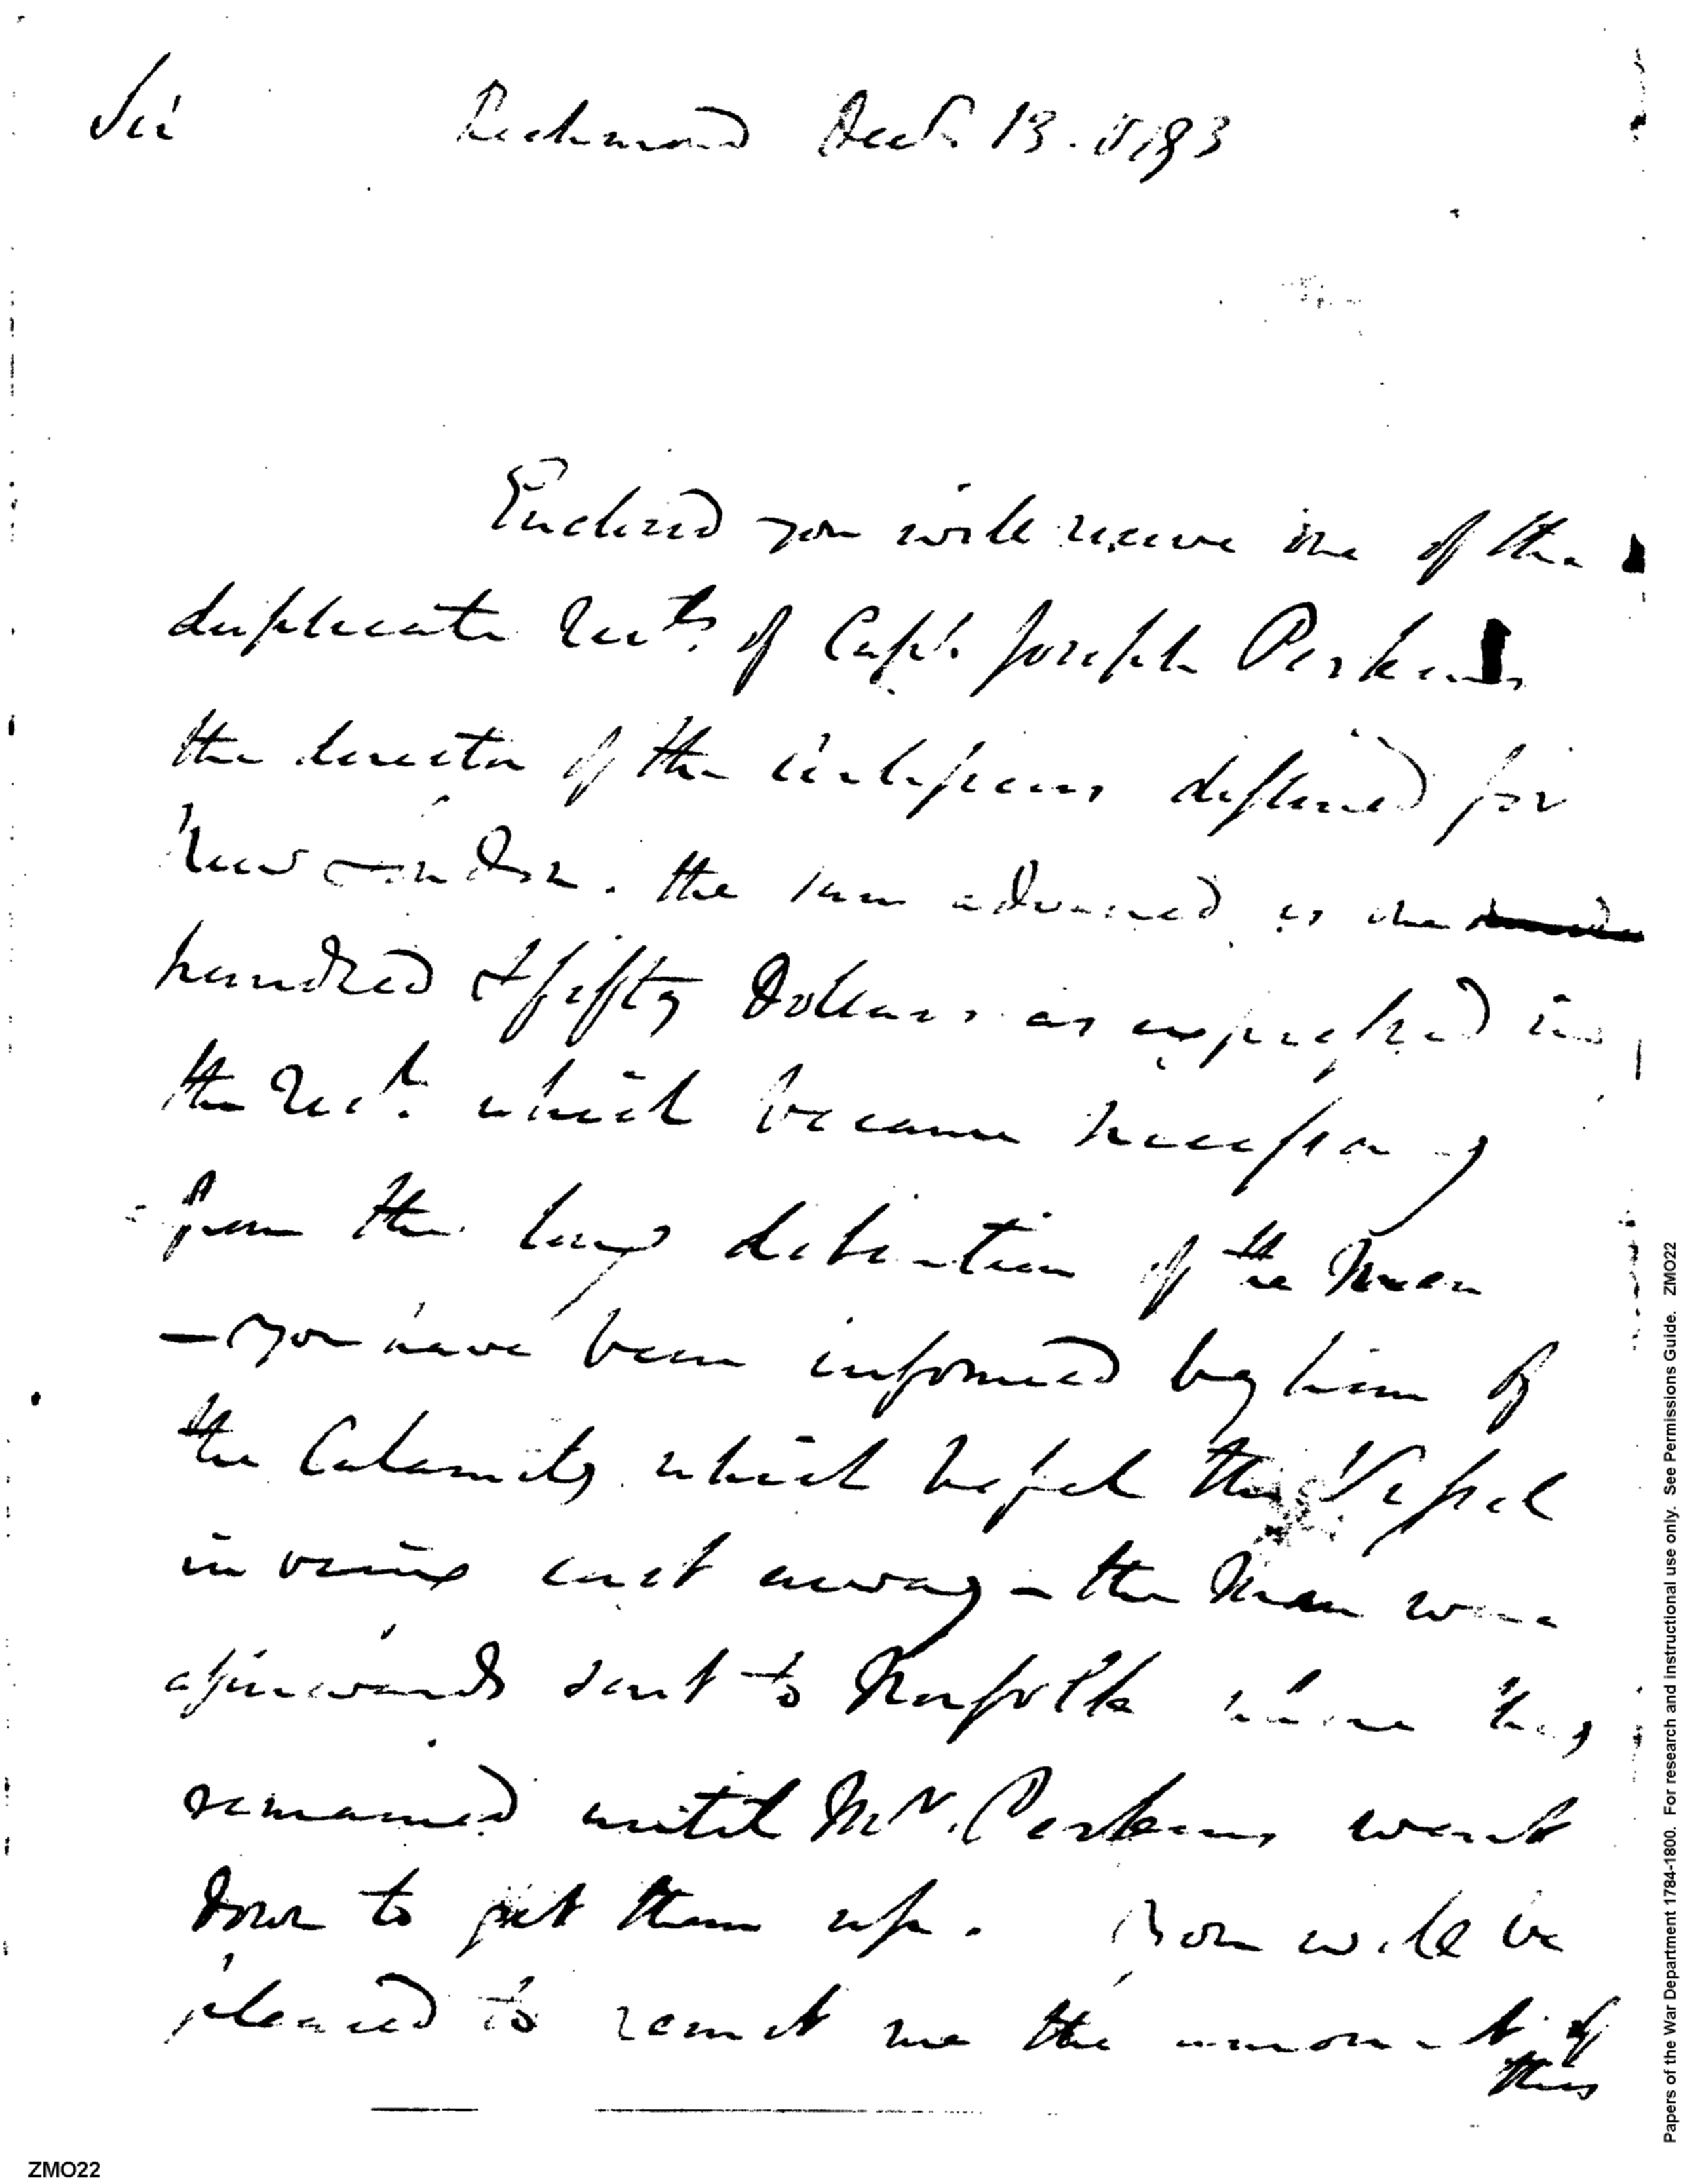 Sir Richmond Decr. 13. 1793
Enclosed you will receive one of the
duplicate Rects. of Capt. Joseph Perkins
the director of the artificers destined for
New London. the sum advanced is one
hundred & fifty Dollars as expressed in
the Rect. which became necessary
from the long detention of the Men
— you have been informed by him of
the Calamity which befel the Vessel
in being cast away – the Men were
afterwards sent to Norfolk where they
remained until Mr. Perkins went
down to get them up. You will be
pleased to remit me the amount of
this
ZMO22
Papers of the War Department 1784-1800. For research and instructional use only. See Permissions Guide. ZMO22